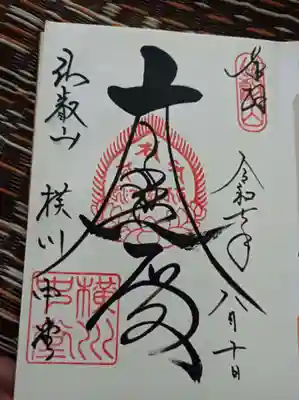 奉拝
令和七年八月十日
大悲殿
比叡山
横川中堂
横川
中堂